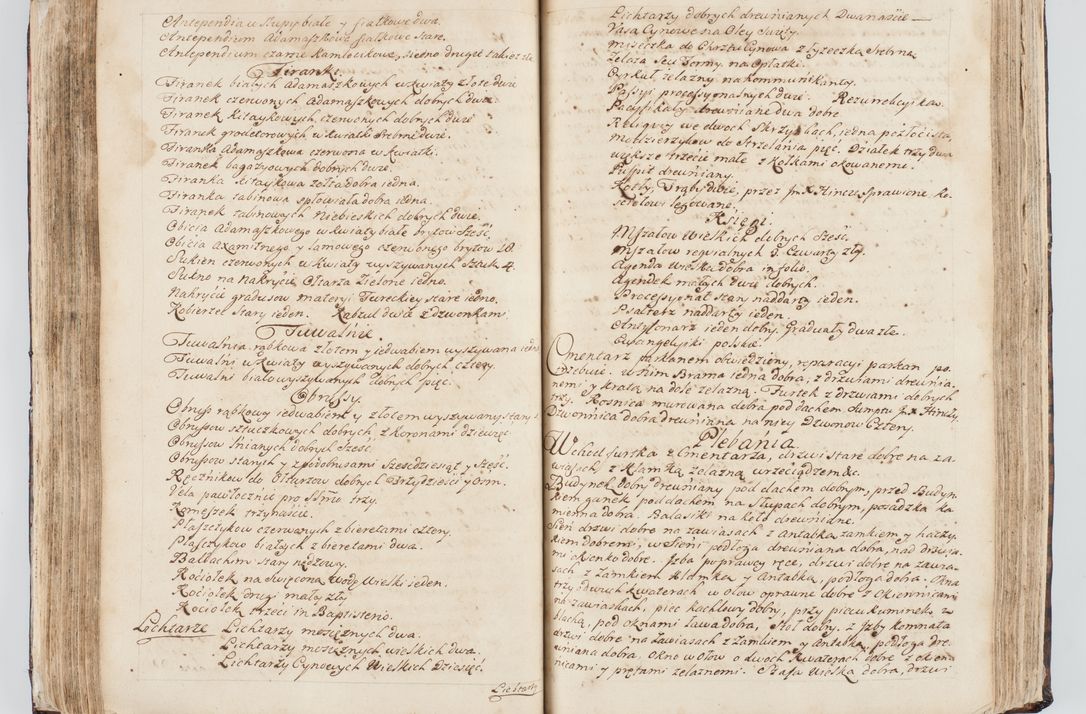 Antependia w słupy białe y fiałkowe dwa.
Antependium Adamaszkowe fiałkowe stare.
Antependium czarne Kamlotkowe, iedno drugie takież złe
Firanki.
Firanek białych Adamaszkowych w kwiaty złote dwie
Firanek czerwonych Adamaszkowych dobrych dwie
Firanek Kitaykowych czerwonych dobrych dwie
Firanek grodetorowych w kwiatki srebrne dwie.
Firanka Adamaszkowa czerwona w kwiatki.
Firanek bagazyowych dobrych dwie.
Firanka kitaykowa żołta dobra iedna.
Firanka tabinowa spłowiała dobra iedna.
Firanek tabinowych Niebieskich dobrych dwie.
Obicia Adamaszkowego w kwiaty białe brytow Sześć.
Obicia Axamitnego y lamowego czerwonego brytow 28.
Sukien czerwonych w kwiaty wyszywanych Sztuk 4.
Sukno na Nakrycie Ołtarza Zielone iedno.
Nakrycie gradusow materyi Tureckiey stare iedno.
Kobierzec Stary ieden. Kabzul dwie z dzwonkami.
Tuwalnie
Tuwalnia rąbkowa złotem y iedwabiem wyszywana iedna
Tuwalni w kwiaty wyszywanych dobrych cztery.
Tuwalni biało wyszywanych dobrych pięć.
Obrusy.
Obrus rąbkowy iedwabiem y złotem wyszywany stary
Obrusow sztuczkowych dobrych z Koronami dziewięć
Obrusow lnianych dobrych Sześć.
Obrusow starych y z podobrusami Sześćdziesiąt y Sześć.
Ręcznikow do Ołtarzow dobrych Trzydzieści y Osm.
Vela pawłoczne pro trzy.
Komeszek trzynaście.
Płaszczykow czerwonych z bieretami cztery.
Płaszczykow białych z bieretami dwa.
Baldachim stary nadzowy.
Kociołek na święconą Wodę Wielki ieden.
Kociołek drugi mały zły
Kociołek trzeci in Baptisterio.
Lichtarze Lichtarzy mosiężnych dwa.
Lichtarzy mosiężnych wielkich dwa.
Lichtarzy Cynowych Wielkich Dziesięć.
Lichtarzy
Lichtarzy dobrych drewnianych Dwanaście
Vasa Cynowe na Oley Święty.
Miseczka do Chrztu Cynowa z łyżeczką Srebrną
Żelaza Seu Formy na Opłatki.
Cyrkuł żelazny na kommunikanty.
Passyi processyonalnych dwie. Rezurrekcyi
Pacyfikały drewniane dwa dobre
Relikwiy we dwoch Skrzynkach, iedna pozłocista
Mozdzierzykow do Strzelania pięć. Działek trzy dwa
większe trzecie małe z kolkami okowanemi.
Pulpit drewniany.
Kotły, Trąby dwie, przez Jm X Hincze Sprawione ko-
sciołowi legowane.
Księgi.
Mszałow Wielkich dobrych Sześć.
Mszałow reqvialnych 3. Czwarty zły.
Agenda Wielka dobra in folio.
Agendek małych dwie dobrych.
Processyonał stary naddarty ieden.
Psałterz naddarty ieden.
Antyfonarz ieden dobry. Graduały dwa złe.
Ewangelyiki polskie.
Cmentarz parkanem obwiedziony, reparacyi parkan po-
trzebuie. W nim Brama iedna dobra, z drzwiami drewnia-
nemi y krata na dole żelazna. Furtek z drzwiami dobrych
trzy. Kosnica murowana dobra pod dachem Sumptu Jm X Hinczy.
Dzwonnica dobra drewniana na niey Dzwonow Cztery.
Plebania
Wchod furtka z Cmentarza, drzwi stare dobre na za-
wiasach z Klamką żelazną wrzeciądzem &c.
Budynek dobry drewniany pod dachem dobrym, przed Budyn-
kiem ganek pod dachem na Słupach dobrym, posadzka ka-
mienna dobra. Balasiki na koło drewniane.
Sień drzwi dobre na zawiasach z Antabką zamkiem y haczy-
kiem dobremi, w Sieni podłoga drewniana dobra, nad drzwia-
mi okienko dobre. Izba po prawey ręce, drzwi dobre na zawia-
sach z Zamkiem Klamką y Antabką, podłoga dobra. Okna
trzy, w dwuch kwaterach w ołow oprawne dobre z Okiennicami
na zawiasach, piec kachlowy dobry, przy piecu kuminek z
blachą, pod oknami ława dobra, Stoł dobry. z Izby komnata
drzwi dobre na zawiasach z zamkiem y Antabką, podłoga dre-
wniana dobra. Okno w ołow o dwoch kwaterach dobre z okien-
nicami y prętami żelaznemi. Szafa wielka dobra, drzwi